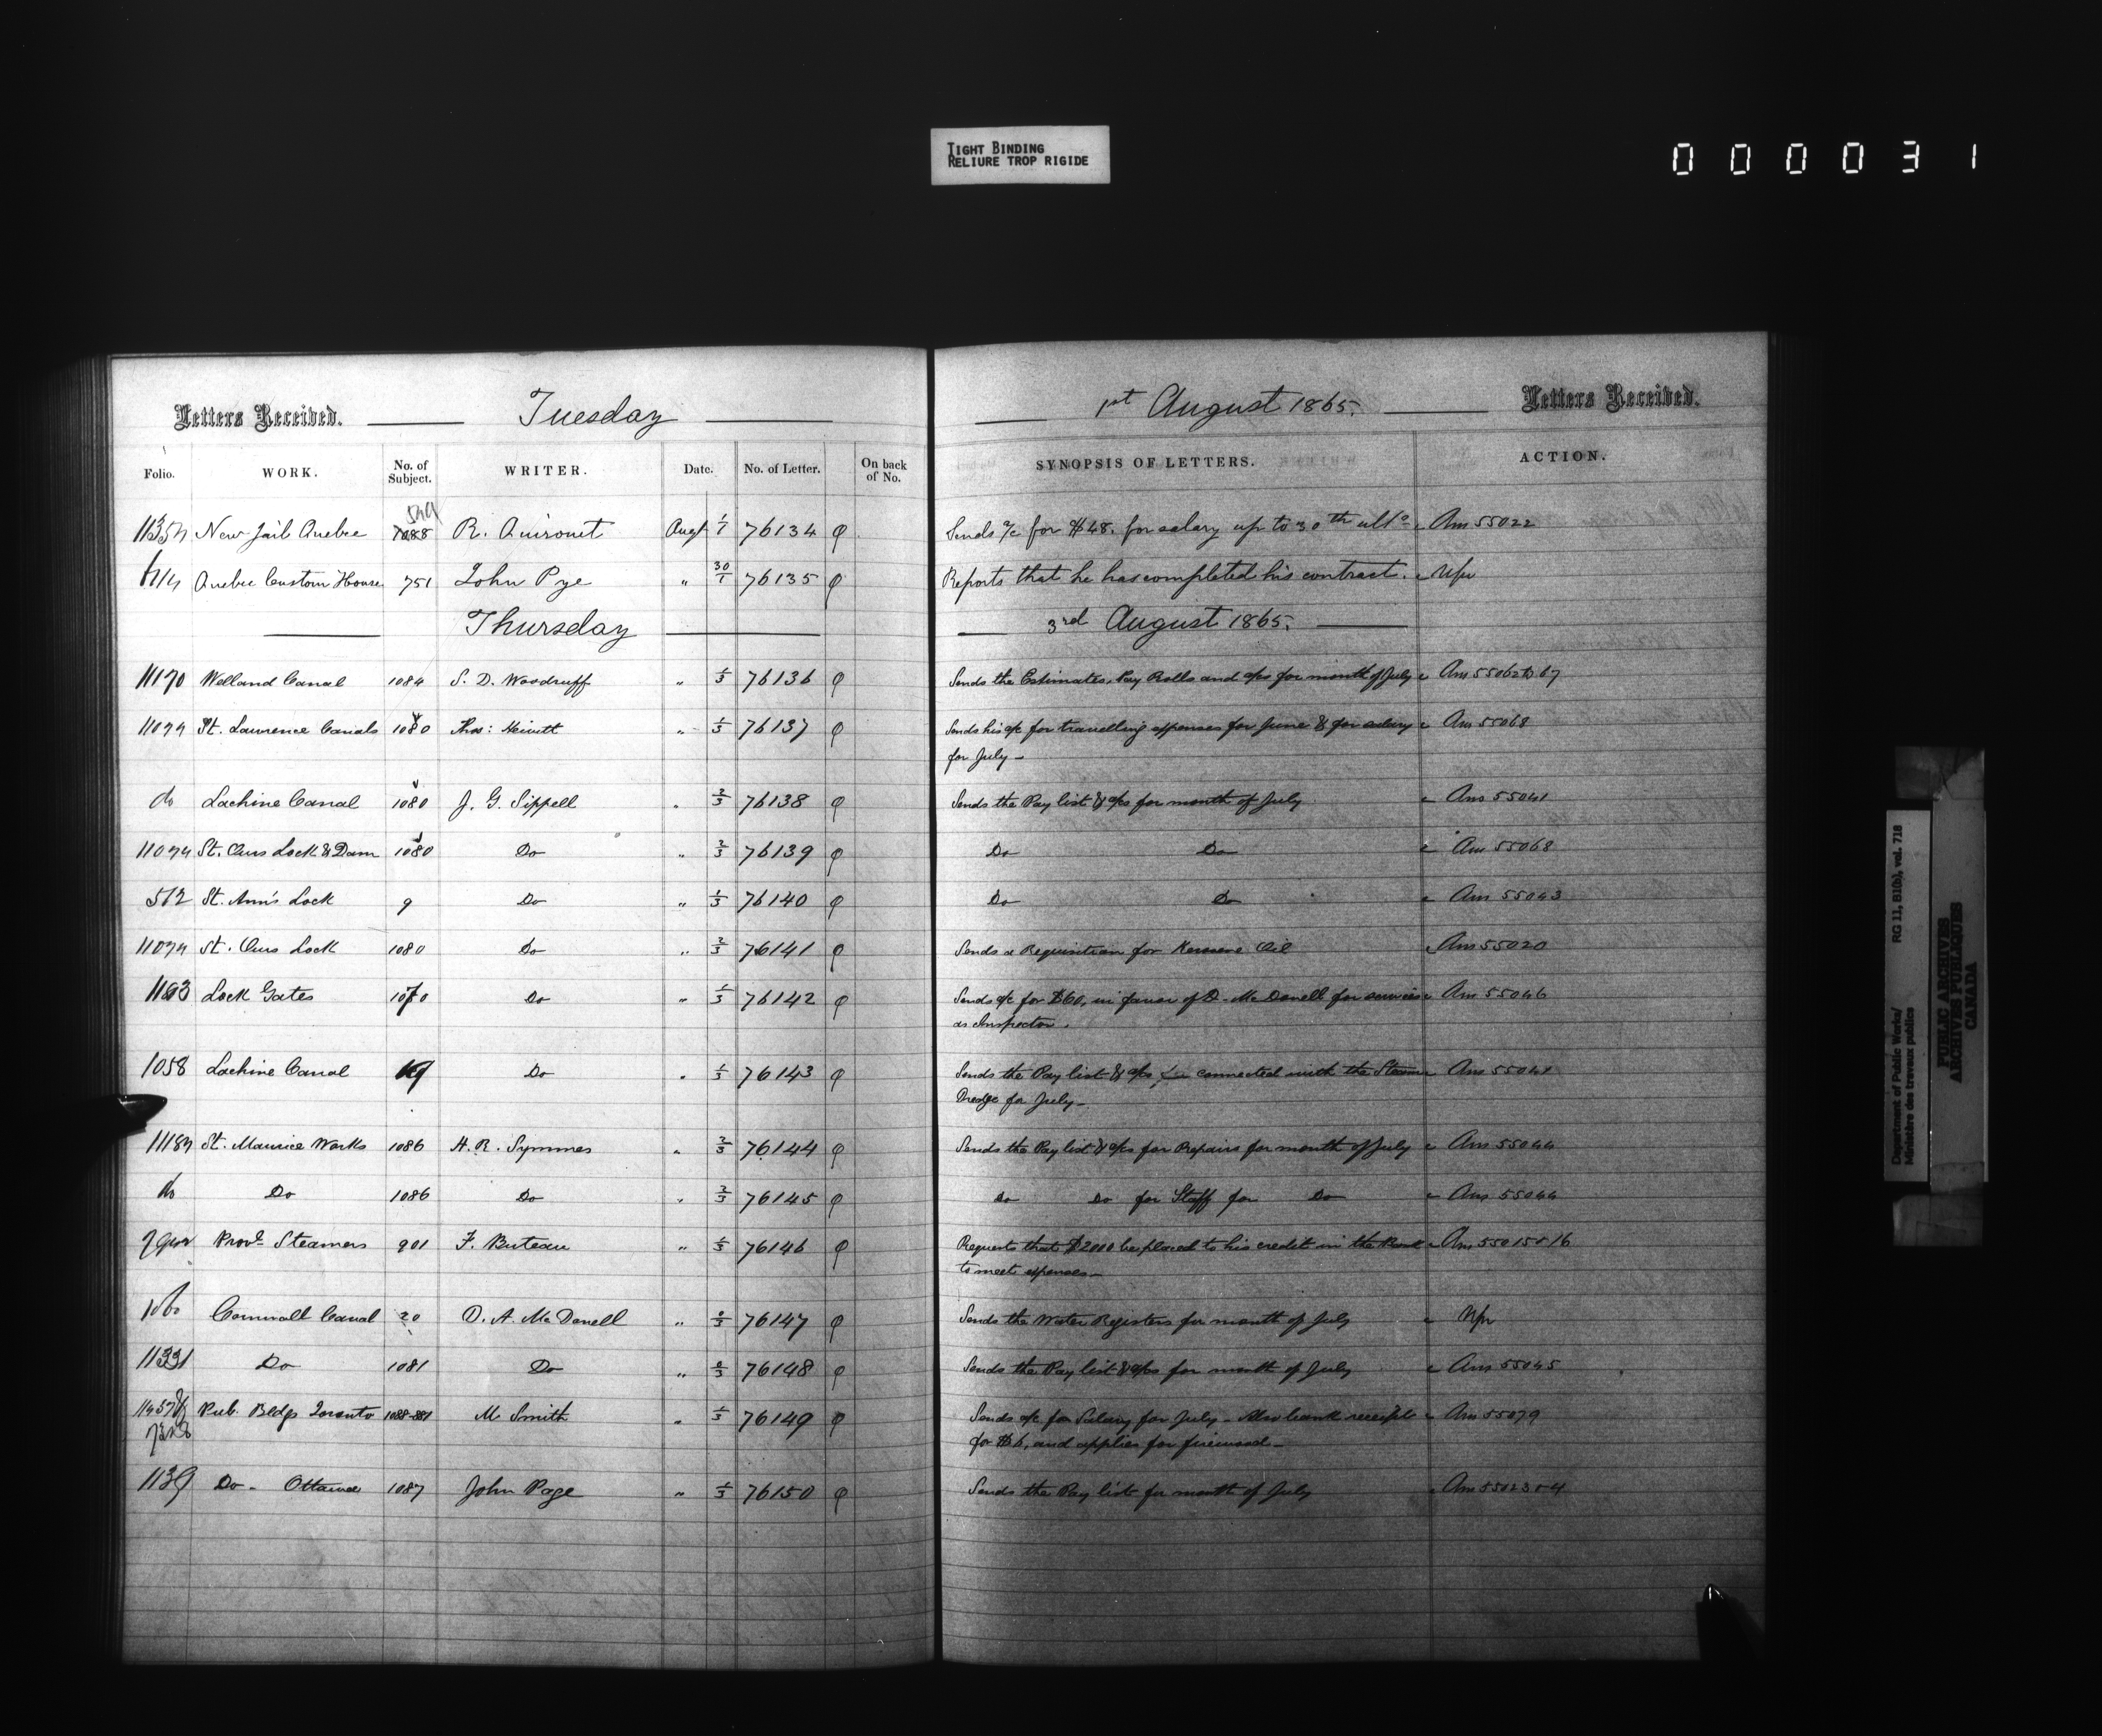 TIGHT BINDING
RELIURE TROP RIGIDE
000031
Letters Received. Tuesday 1st August 1865. Letters Received.
Folio. WORK. No. of Subject. WRITER. Date. No. of Letter. On back of No. SYNOPSIS OF LETTERS. ACTION.
New Jail Quebec 1088 R. Quironet Augt 1/1 76134 Sends a/c for $48. for salary up to 30th ulto. Ans 55022
Quebec Custom House 751 John Pye " 30/1 76135 Reports that he has completed his contract.
Thursday 3rd August 1865.
11170 Welland Canal 1084 S. D. Woodruff " 1/3 76136 Sends the Estimates, Pay Rolls and a/cs for month of July Ans 55062 to 67
St. Lawrence Canals 1080 Thos: Hewitt " 1/3 76137 Sends his a/c for travelling expenses for June & for salary Ans 55068
for July -
do Lachine Canal 1080 J. G. Sippell " 2/3 76138 Sends the Pay list & a/cs for month of July Ans 55041
St. Ours Lock & Dam 1080 Do " 2/3 76139 Do Do Ans 55068
572 St. Ann's Lock 9 Do " 1/3 76140 Do Do Ans 55043
St. Ours Lock 1080 Do " 2/3 76141 Sends a Requisition for Kerosene Oil Ans 55020
Lock Gates 1070 Do " 1/3 76142 Sends a/c for $60, in favor of D. McDonell for services Ans 55046
as Inspector.
1058 Lachine Canal 19 Do " 1/3 76143 Sends the Pay list & a/cs connected with the Steam Ans 55041
Dredge for July -
St. Maurice Works 1086 H. R. Symmes " 2/3 76144 Sends the Pay list & a/cs for Repairs for month of July Ans 55044
do Do 1086 Do " 2/3 76145 Do Do for Staff for Do Ans 55044
Provl. Steamers 901 F. Buteau " 1/3 76146 Requests that $2000 be placed to his credit in the Bank Ans 55015 & 16
to meet expenses -
Cornwall Canal 20 D. A. McDonell " 2/3 76147 Sends the Water Registers for month of July
11331 Do 1081 Do " 2/3 76148 Sends the Pay list & a/cs for month of July Ans 55045
Pub. Bldgs Toronto 1088-881 M. Smith " 1/3 76149 Sends a/c for Salary for July - Also bank receipt Ans 55079
for $6, and applies for firewood -
1139 Do - Ottawa 1087 John Page " 1/3 76150 Sends the Pay list for month of July Ans 55023 & 4
Department of Public Works/ RG 11, B1(b), vol. 718
Ministère des travaux publics
PUBLIC ARCHIVES
ARCHIVES PUBLIQUES
CANADA